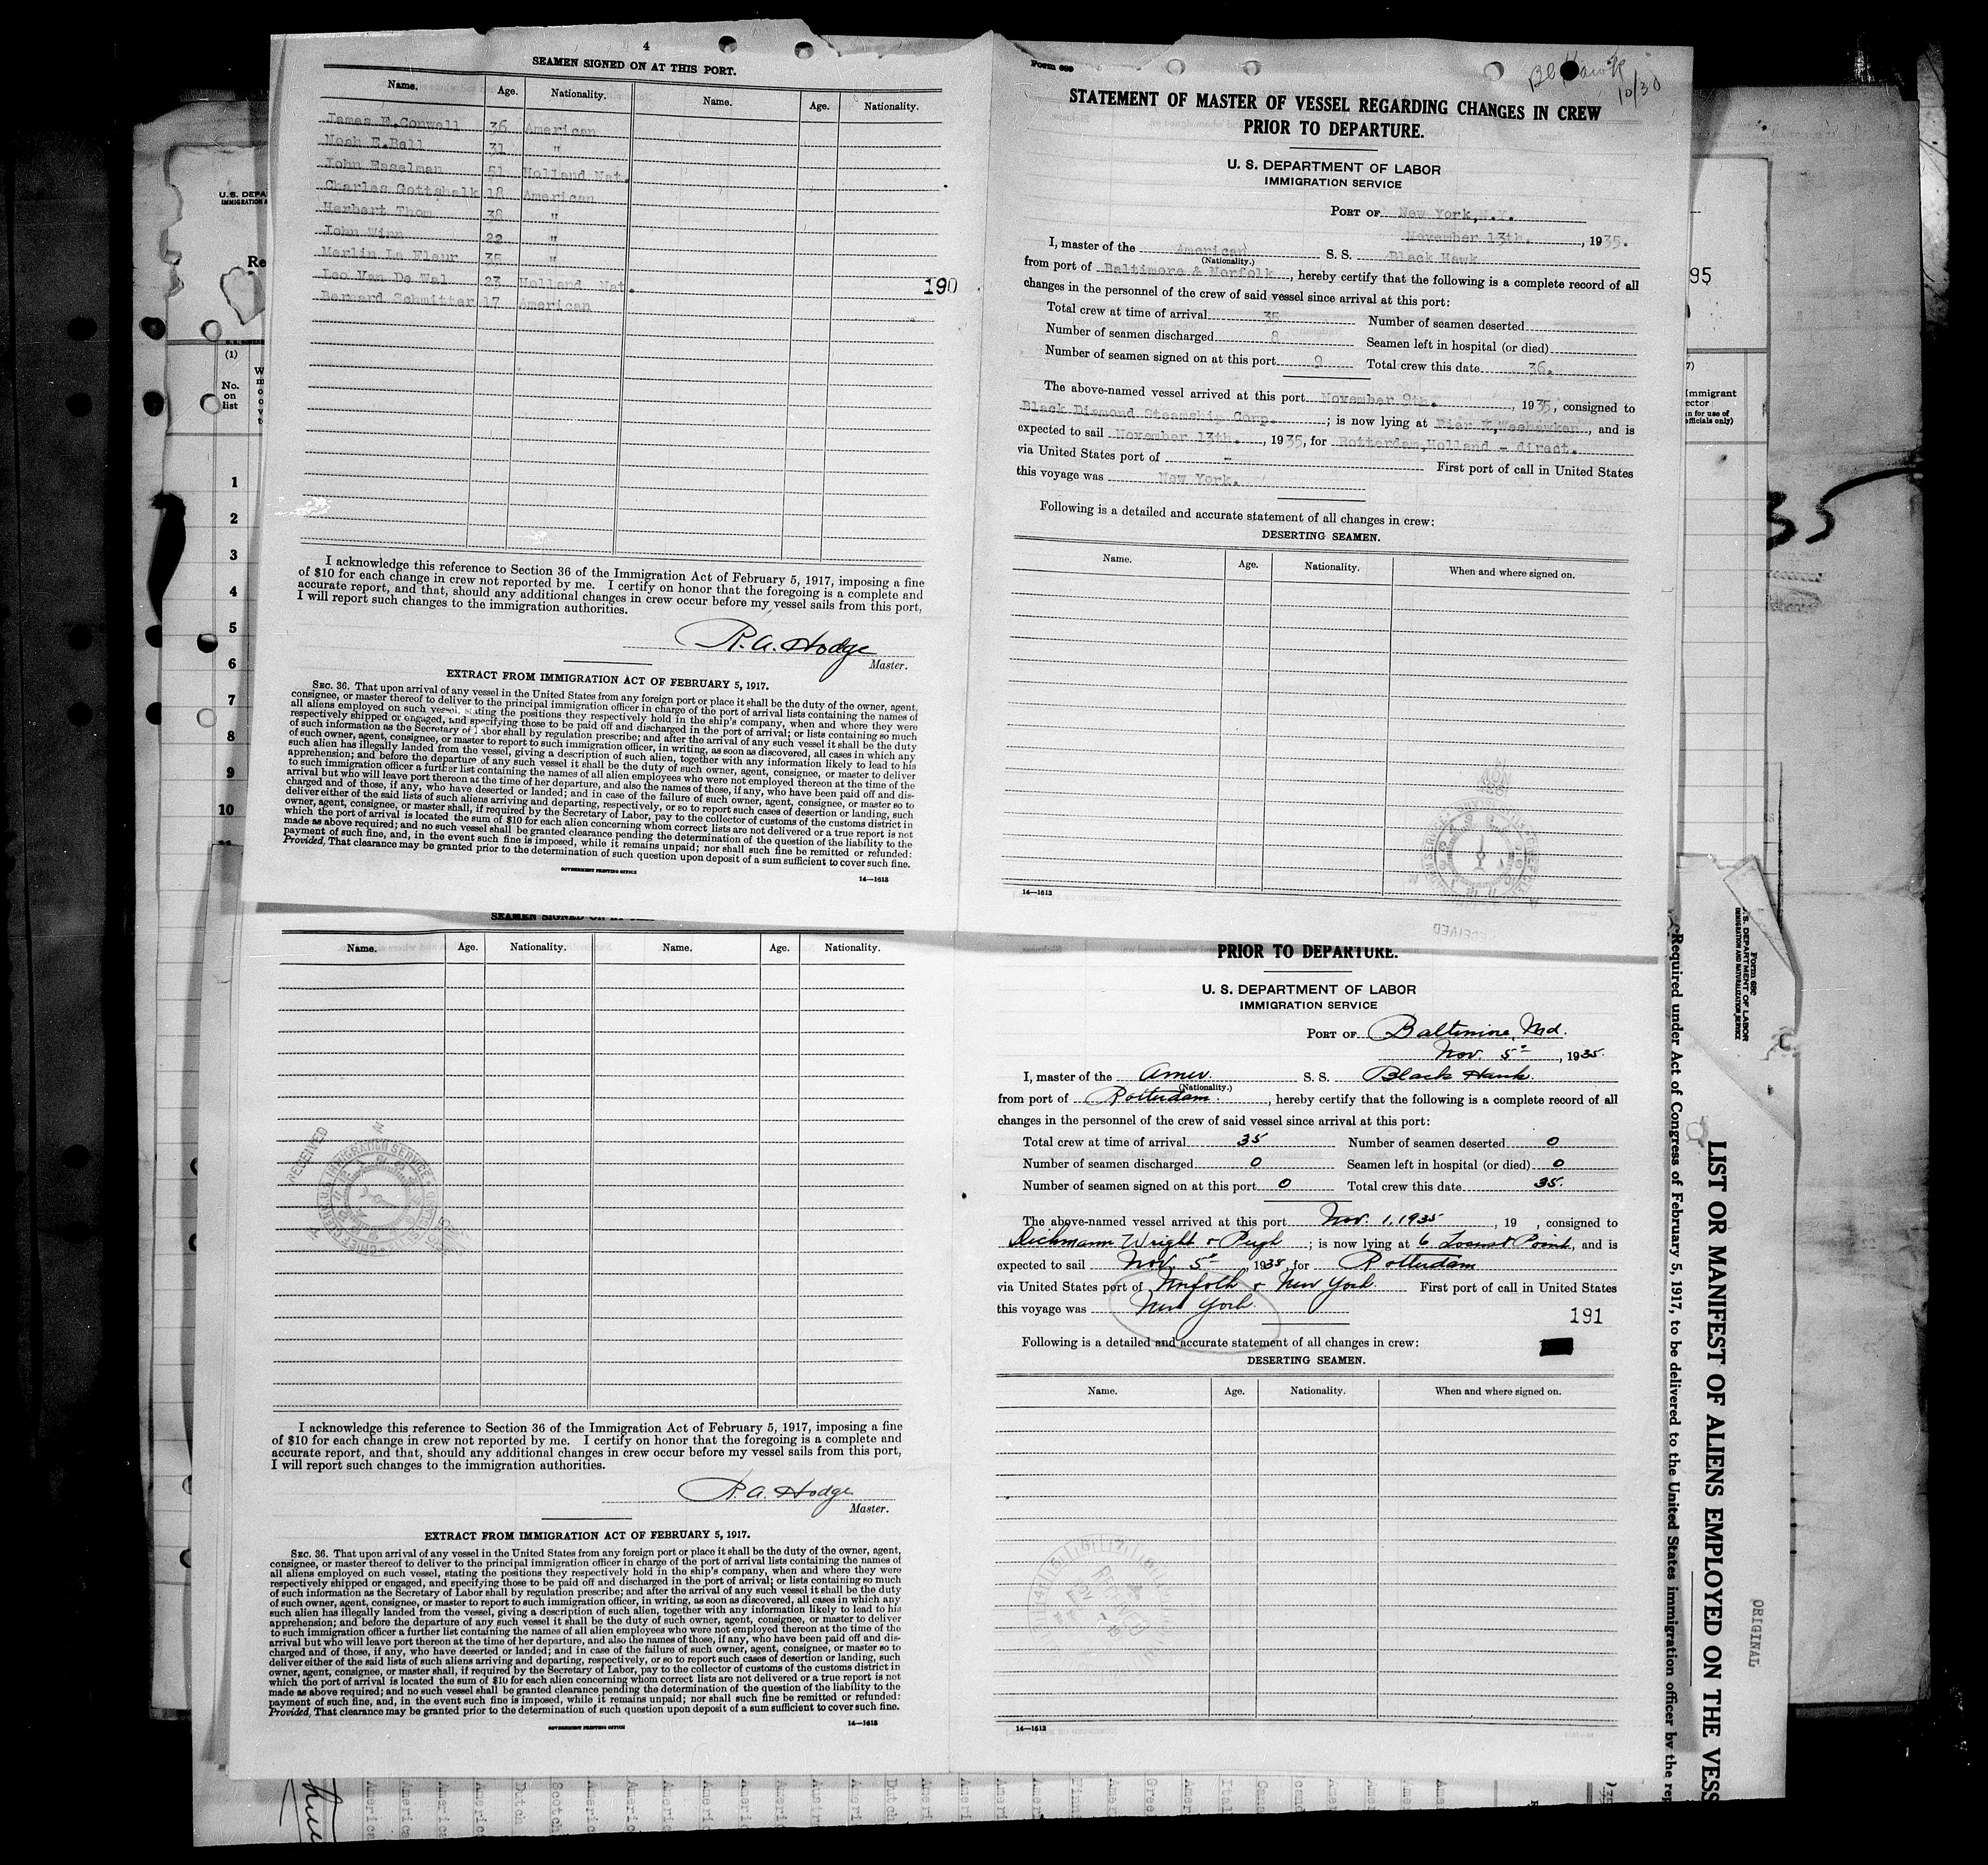 4
SEAMEN SIGNED ON AT THIS PORT.
Name. Age. Nationality. Name. Age. Nationality.
James E.Conwell 36 American
Noah E.Ball 31 "
John Esselman 51 Holland Nat.
Charles Gottshalk 18 American
Herbert Thom 38 "
John Winn 22 "
Merlin La Fleur 35 "
Leo Van De Wal 23 Holland Nat.
Bernard Schmitter 17 American
190
I acknowledge this reference to Section 36 of the Immigration Act of February 5, 1917, imposing a fine
of $10 for each change in crew not reported by me. I certify on honor that the foregoing is a complete and
accurate report, and that, should any additional changes in crew occur before my vessel sails from this port,
I will report such changes to the immigration authorities.
R. A. Hodge
Master.
EXTRACT FROM IMMIGRATION ACT OF FEBRUARY 5, 1917.
SEC. 36. That upon arrival of any vessel in the United States from any foreign port or place it shall be the duty of the owner, agent,
consignee, or master thereof to deliver to the principal immigration officer in charge of the port of arrival lists containing the names of
all aliens employed on such vessel, stating the positions they respectively hold in the ship's company, when and where they were
respectively shipped or engaged, and specifying those to be paid off and discharged in the port of arrival; or lists containing so much
of such information as the Secretary of Labor shall by regulation prescribe; and after the arrival of any such vessel it shall be the duty
of such owner, agent, consignee, or master to report to such immigration officer, in writing, as soon as discovered, all cases in which any
such alien has illegally landed from the vessel, giving a description of such alien, together with any information likely to lead to his
apprehension; and before the departure of any such vessel it shall be the duty of such owner, agent, consignee, or master to deliver
to such immigration officer a further list containing the names of all alien employees who were not employed thereon at the time of the
arrival but who will leave port thereon at the time of her departure, and also the names of those, if any, who have been paid off and dis-
charged and of those, if any, who have deserted or landed; and in case of the failure of such owner, agent, consignee, or master so to
deliver either of the said lists of such aliens arriving and departing, respectively, or so to report such cases of desertion or landing, such
owner, agent, consignee, or master shall, if required by the Secretary of Labor, pay to the collector of customs of the customs district in
which the port of arrival is located the sum of $10 for each alien concerning whom correct lists are not delivered or a true report is not
made as above required; and no such vessel shall be granted clearance pending the determination of the question of the liability to the
payment of such fine, and, in the event such fine is imposed, while it remains unpaid; nor shall such fine be remitted or refunded:
Provided, That clearance may be granted prior to the determination of such question upon deposit of a sum sufficient to cover such fine.
GOVERNMENT PRINTING OFFICE
14—1613
Form 689
Bl Hawk
10/30
STATEMENT OF MASTER OF VESSEL REGARDING CHANGES IN CREW
PRIOR TO DEPARTURE.
U. S. DEPARTMENT OF LABOR
IMMIGRATION SERVICE
PORT OF New York,N.Y.
November 13th. , 1935.
I, master of the American S. S. Black Hawk
(Nationality.)
from port of Baltimore & Norfolk , hereby certify that the following is a complete record of all
changes in the personnel of the crew of said vessel since arrival at this port:
Total crew at time of arrival 35 Number of seamen deserted
Number of seamen discharged 8 Seamen left in hospital (or died)
Number of seamen signed on at this port 9 Total crew this date 36.
The above-named vessel arrived at this port November 9th. , 1935, consigned to
Black Diamond Steamship Corp. ; is now lying at Pier K,Weehawken , and is
expected to sail November 13th. , 1935, for Rotterdam,Holland - direct.
via United States port of - First port of call in United States
this voyage was New York.
Following is a detailed and accurate statement of all changes in crew:
DESERTING SEAMEN.
Name. Age. Nationality. When and where signed on.
14—1613
SEAMEN SIGNED ON
Name. Age. Nationality. Name. Age. Nationality.
RECEIVED
I acknowledge this reference to Section 36 of the Immigration Act of February 5, 1917, imposing a fine
of $10 for each change in crew not reported by me. I certify on honor that the foregoing is a complete and
accurate report, and that, should any additional changes in crew occur before my vessel sails from this port,
I will report such changes to the immigration authorities.
R. A. Hodge
Master.
EXTRACT FROM IMMIGRATION ACT OF FEBRUARY 5, 1917.
SEC. 36. That upon arrival of any vessel in the United States from any foreign port or place it shall be the duty of the owner, agent,
consignee, or master thereof to deliver to the principal immigration officer in charge of the port of arrival lists containing the names of
all aliens employed on such vessel, stating the positions they respectively hold in the ship's company, when and where they were
respectively shipped or engaged, and specifying those to be paid off and discharged in the port of arrival; or lists containing so much
of such information as the Secretary of Labor shall by regulation prescribe; and after the arrival of any such vessel it shall be the duty
of such owner, agent, consignee, or master to report to such immigration officer, in writing, as soon as discovered, all cases in which any
such alien has illegally landed from the vessel, giving a description of such alien, together with any information likely to lead to his
apprehension; and before the departure of any such vessel it shall be the duty of such owner, agent, consignee, or master to deliver
to such immigration officer a further list containing the names of all alien employees who were not employed thereon at the time of the
arrival but who will leave port thereon at the time of her departure, and also the names of those, if any, who have been paid off and dis-
charged and of those, if any, who have deserted or landed; and in case of the failure of such owner, agent, consignee, or master so to
deliver either of the said lists of such aliens arriving and departing, respectively, or so to report such cases of desertion or landing, such
owner, agent, consignee, or master shall, if required by the Secretary of Labor, pay to the collector of customs of the customs district in
which the port of arrival is located the sum of $10 for each alien concerning whom correct lists are not delivered or a true report is not
made as above required; and no such vessel shall be granted clearance pending the determination of the question of the liability to the
payment of such fine, and, in the event such fine is imposed, while it remains unpaid; nor shall such fine be remitted or refunded:
Provided, That clearance may be granted prior to the determination of such question upon deposit of a sum sufficient to cover such fine.
GOVERNMENT PRINTING OFFICE
14—1613
PRIOR TO DEPARTURE.
U. S. DEPARTMENT OF LABOR
IMMIGRATION SERVICE
PORT OF Baltimore, Md.
Nov. 5" , 1935.
I, master of the Amer. S. S. Black Hawk.
(Nationality.)
from port of Rotterdam. , hereby certify that the following is a complete record of all
changes in the personnel of the crew of said vessel since arrival at this port:
Total crew at time of arrival 35 Number of seamen deserted 0
Number of seamen discharged 0 Seamen left in hospital (or died) 0
Number of seamen signed on at this port 0 Total crew this date 35.
The above-named vessel arrived at this port Nov. 1, 1935 , 19 , consigned to
Dichmann Wright & Pugh ; is now lying at 6 Locust Point, and is
expected to sail Nov. 5" , 1935, for Rotterdam
via United States port of Norfolk & New York. First port of call in United States
this voyage was New York.
191
Following is a detailed and accurate statement of all changes in crew:
DESERTING SEAMEN.
Name. Age. Nationality. When and where signed on.
14—1613
U.S. DEPA
IMMIGRATION A
Re
(1)
No.
on
list
1
2
3
4
5
6
7
8
9
10
95
35
Immigrant
ector
n for use of
officials only)
Form 689
U. S. DEPARTMENT OF LABOR
IMMIGRATION AND NATURALIZATION SERVICE
LIST OR MANIFEST OF ALIENS EMPLOYED ON THE VESS
Required under Act of Congress of February 5, 1917, to be delivered to the United States immigration officer by the rep
ORIGINAL
America
America
America
America
Dutch
Scotch
America
Americ
America
Americ
Americ
America
Austra
Ameri
Dutch
Ameri
Ameri
Ameri
Amer
Finni
Amer
Greek
Amer
Ital
Cana